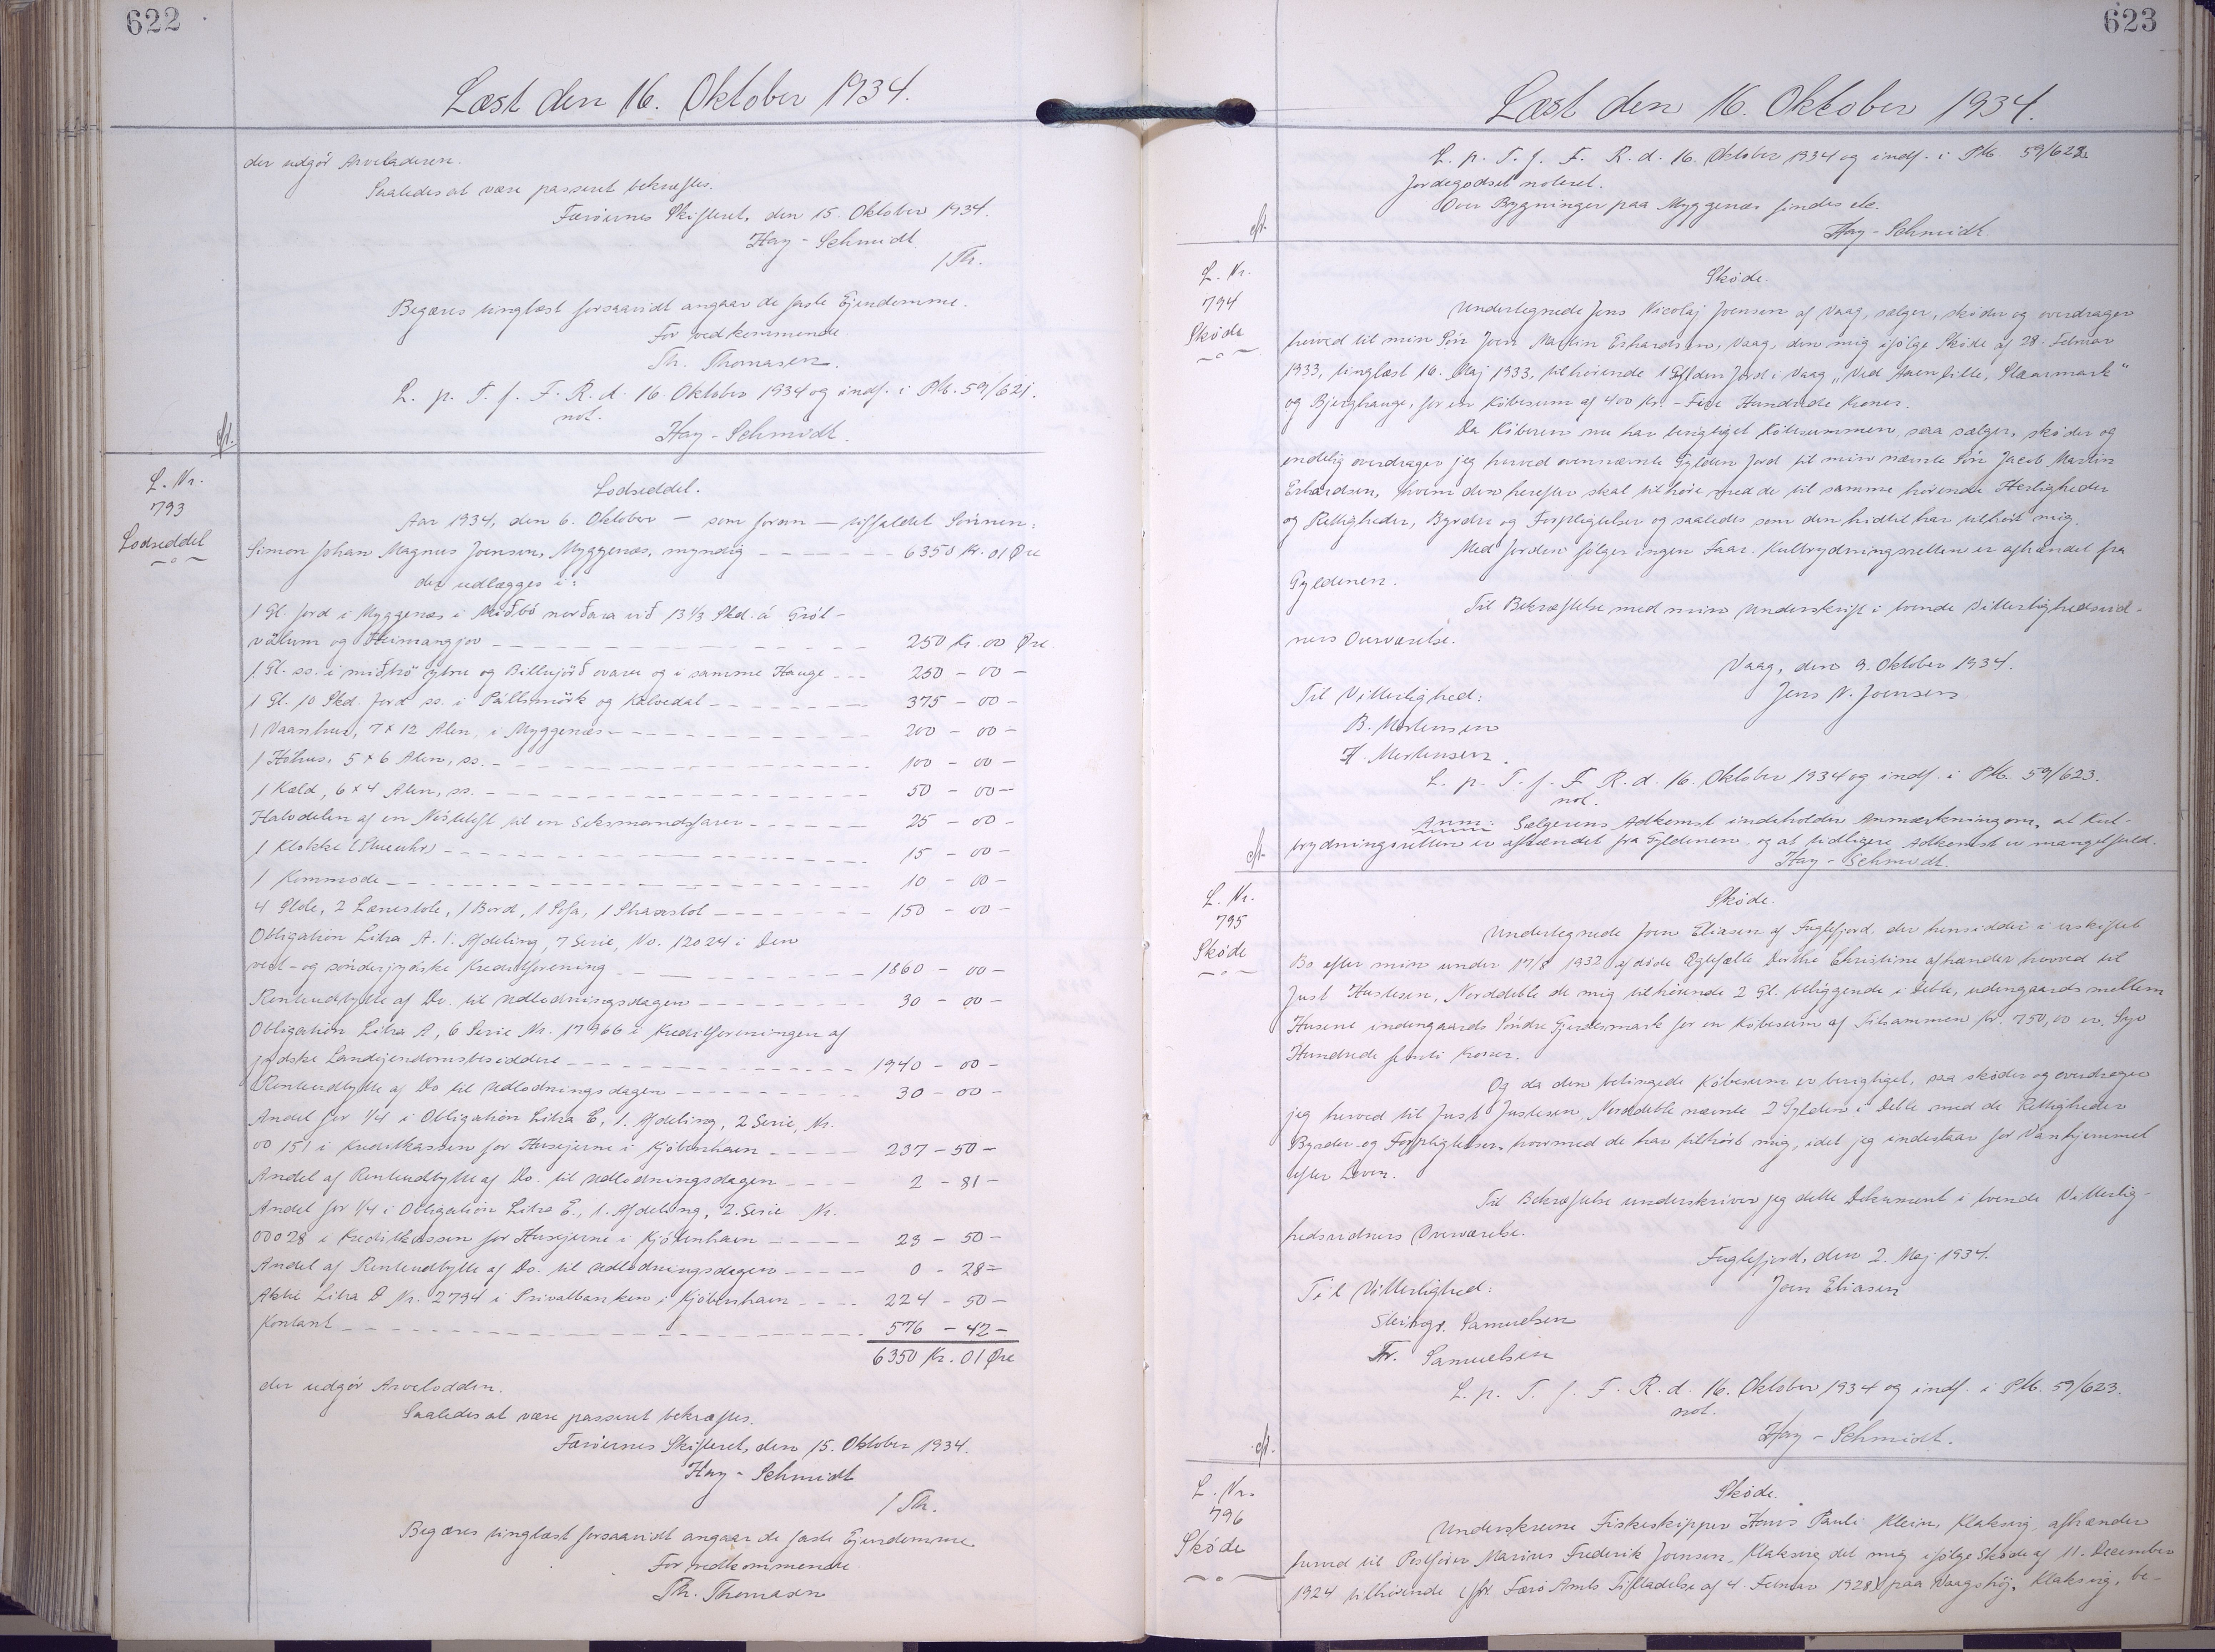 622
Læst den 16. Oktober 1934.
der udgör Arveladeren.
Saaledes at være passeret bekræftes.
Færöernes Skifteret, den 15. Oktober 1934.
Hay-Schmidt
/Th.
Begæres tinglæst forsaavidt angaar de faste Ejendomme.
For vedkommende
Th. Thomasen.
L. p. T. f. F. R. d. 16 Oktober 1934 og indf. i Ptb. 59/621.
not.
Hay-Schmidt.
L. Nr.
793
Lodseddel
Lodseddel.
Aar 1934, den 6. Oktober — som foran — tilfaldet Sönnen:
Simon Johan Magnus Joensen, Myggenæs, myndig - - - - - 6350 Kr. 01 Öre
der udlægges i:
1 Gl. Jord i Myggenæs i Miðbö norðara við 13 1/3 Skd. á Gról-
völum og Heimangjov - - - - - 250 Kr. 00 Öre
1 Gl. ss. i miðbö ytru og Billujörð ovara og i samme Hauge - - - 250 - 00 -
1 Gl. 10 Skd. Jord ss. i Pállsmörk og Kalvedal - - - - - 375 - 00 -
1 Vaanhus, 7 x 12 Alen, i Myggenæs - - - - - 200 - 00 -
1 Höhus, 5 x 6 Alen, ss. - - - - - 100 - 00 -
1 Kæld, 6 x 4 Alen, ss. - - - - - 50 - 00 -
Halvdelen af en Nöstetoft til en Seksmandsfarer - - - - - 25 - 00 -
1 Klokke (Stueuhr) - - - - - 15 - 00 -
1 Kommode - - - - - 10 - 00 -
4 Stole, 2 Lænestole, 1 Bord, 1 Sofa, 1 Straastol - - - - - 150 - 00 -
Obligation Litra A. 1. Afdeling, 7 Serie, No. 12024 i Den
vest- og sönderjydske Kreditforening - - - - - 1860 - 00 -
Renteudbytte af Do. til Udlodningsdagen - - - - - 30 - 00 -
Obligation Litra A, 6 Serie Nr. 17966 i Kreditforeningen af
jydske Landejendomsbesiddere - - - - - 1940 - 00 -
Renteudbytte af Do til Udlodningsdagen - - - - - 30 - 00 -
Andel for 1/4 i Obligation Litra C, 1. Afdeling, 2 Serie, Nr.
00151 i Kreditkassen for Husejerne i Kjöbenhavn - - - - - 237 - 50 -
Andel af Renteudbytte af Do. til Udlodningsdagen - - - - 2 - 81 -
Andel for 1/4 i Obligation Litra E., 1. Afdeling, 2. Serie Nr.
00028 i Kreditkassen for Husejerne i Kjöbenhavn - - - - - 23 - 50 -
Andel af Renteudbytte af Do. til Udlodningsdagen - - - - - 0 - 28 -
Aktie Litra D Nr. 2794 i Privatbanken i Kjöbenhavn - - - - 224 - 50 -
Kontant - - - - - 576 - 42 -
6350 Kr. 01 Öre
der udgör Arvelodden.
Saaledes at være passeret bekræftes.
Færöernes Skifteret, den 15. Oktober 1934.
Hay-Schmidt
/Th.
Begæres tinglæst forsaavidt angaar de faste Ejendomme
For vedkommende
Th. Thomasen
623
Læst den 16. Oktober 1934.
L. p. T. f. F. R. d. 16. Oktober 1934 og indf. i Ptb. 59/622
Jordegodset noteret.
Over Bygninger paa Myggenæs findes etc.
Hay-Schmidt
L. Nr.
794
Skøde
Sköde.
Undertegnede Jens Nicolaj Joensen af Vaag, sælger, sköder og overdrager
herved til min Sön Joen Martin Erhardsen, Vaag, den mig ifölge Sköde af 28. Februar
1933, tinglæst 16. Maj 1933, tilhørende 1 Gylden Jord i Vaag "Ved Aaen lille, Slæarmark"
og Bjerghauge, for en Köbesum af 400 Kr. - Fire Hundrede Kroner.
Da Köberen nu har berigtiget Köbesummen, saa sælger, sköder og
endelig overdrager jeg herved ovennævnte Gylden Jord til min nævnte Sön Jacob Martin
Erhardsen, hvem den herefter skal tilhöre med de til samme hörende Herligheder
og Rettigheder, Byrder og Forpligtelser og saaledes som den hidtil har tilhört mig.
Med Jorden fölger ingen Faar. Kulbrydningsretten er afhændet fra
Gyldenen.
Til Bekræftelse med min Underskrift i tvende Vitterlighedsvid-
ners Overværelse.
Vaag, den 9. Oktober 1934.
Jens N. Joensen
Til Vitterlighed:
B. Mortensen
H. Mortensen.
L. p. T. f. F. R. d. 16. Oktober 1934 og indf. i Ptb. 59/623.
not.
Anm: Sælgerens Adkomst indeholder Anmærkning om, at Kul-
brydningsretten er afhændet fra Gyldenen, og at tidligere Adkomst er mangelfuld.
Hay-Schmidt.
L. Nr.
795
Skøde
Sköde.
Undertegnede Joen Eliasen af Fuglefjord, der hensidder i uskiftet
Bo efter min under 17/8 1932 afdöde Ægtefælle Dorthe Christine afhænder herved til
Just Justesen, Norddeble de mig tilhörende 2 Gl. beliggende i Deble, udengaards mellem
Husene indengaards Söndre Gjerdesmark for en Köbesum af Tilsammen Kr. 750,00 er. Syv
Hundrede femti Kroner.
Og da den betingede Köbesum er berigtiget, saa sköder og overdrager
jeg herved til Just Justesen, Norddeble nævnte 2 Gylden i Deble med de Rettigheder
Byrder og Forpligtelser, hvormed de har tilhört mig, idet jeg indestaar for Vanhjemmel
efter Loven.
Til Bekræftelse underskriver jeg dette Dokument i tvende Vitterlig-
hedsvidners Overværelse.
Fuglefjord, den 2. Maj 1934.
Joen Eliasen
Til Vitterlighed:
Steingr. Samuelsen
Fr. Samuelsen
L. p. T. f. F. R. d. 16. Oktober 1934 og indf. i Ptb. 59/623.
not.
Hay-Schmidt.
L. Nr.
796
Skøde
Sköde.
Underskrevne Fiskeskipper Hans Pauli Klein, Klaksvig, afhænder
herved til Postförer Marius Frederik Joensen, Klaksvig det mig ifölge Sköde af 11. December
1924 tilhörende (jfr. Færö Amts Tilladelse af 4. Februar 1928) paa Vaagshöj, Klaksvig, be-